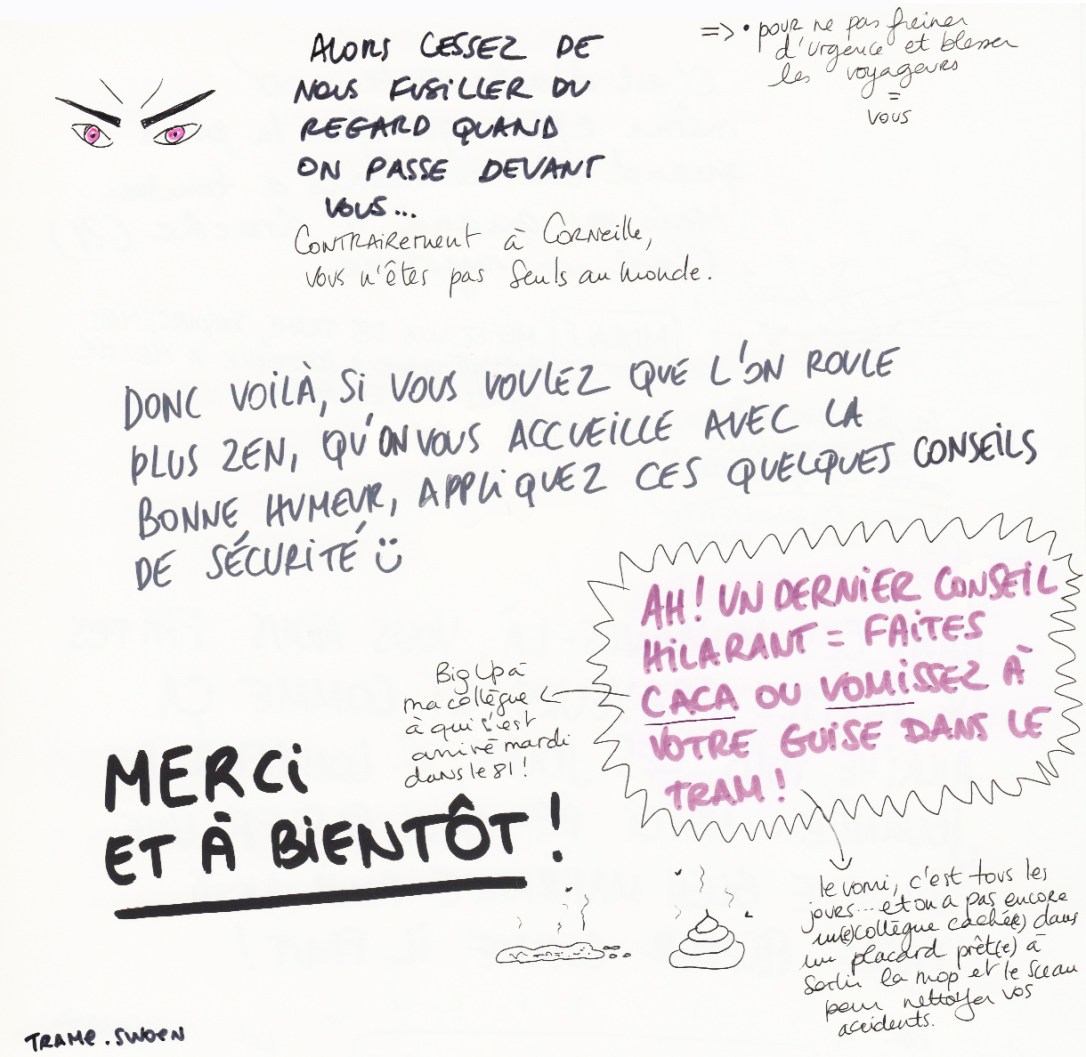 ALORS CESSEZ DE
NOUS FUSILLER DU
REGARD QUAND
ON PASSE DEVANT
VOUS...
CONTRAIREMENT à CORNEILLE,
vous n'êtes pas seuls au monde.
=> • pour ne pas freiner
d'urgence et blesser
les voyageurs
=
vous
DONC VOILÀ, SI VOUS VOULEZ QUE L'ON ROULE
PLUS ZEN, QU'ON VOUS ACCUEILLE AVEC LA
BONNE HUMEUR, APPLIQUEZ CES QUELQUES CONSEILS
DE SÉCURITÉ
AH! UN DERNIER CONSEIL
HILARANT = FAITES
CACA OU VOMISSEZ À
VOTRE GUISE DANS LE
TRAM!
Big Up à
ma collègue
à qui s'est
arrivé mardi
dans le 81!
MERCI
ET À BIENTÔT!
le vomi, c'est tous les
jours... et on a pas encore
un(e) collègue caché(e) dans
un placard prêt(e) à
sortir la mop et le sceau
pour nettoyer vos
accidents.
TRAME.SWOEN